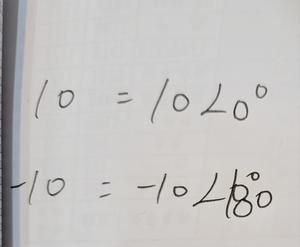 10 = 10∠0°
-10 = -10∠180°